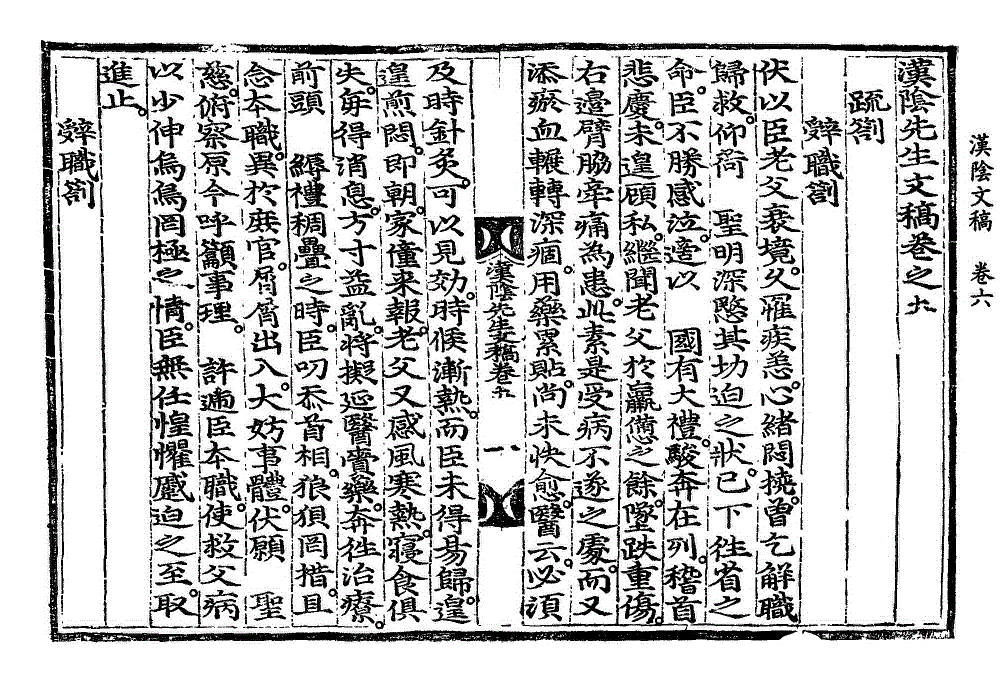 漢陰文稿　卷六
漢陰先生文稿卷之六
疏箚
辭職箚
伏以臣老父衰境。久罹疾恙。心緖悶撓。曾乞解職
歸救。仰荷　聖明深愍其切迫之狀。已下往省之
命。臣不勝感泣。適以　國有大禮。駿奔在列。稽首
悲慶。未遑顧私。繼聞老父於羸憊之餘。墜跌重傷。
右邊臂脇牽痛爲患。此素是受病不遂之處。而又
添瘀血輾轉深痼。用藥累貼。尙未快愈。醫云。必須
漢陰先生文稿卷之六　一
及時針灸。可以見効。時候漸熱。而臣未得昜歸。遑
遑煎悶。卽朝。家僮來報。老父又感風寒熱。寢食俱
失。每得消息。方寸益亂。將擬延醫賫藥。奔往治療。
前頭　縟禮稠疊之時。臣叨忝首相。狼狽罔措。且
念本職。異於庶官。屑屑出入。大妨事體。伏願　聖
慈。俯察原今呼籲事理。　許遞臣本職。使救父病
以少伸烏鳥罔極之情。臣無任惶懼感迫之至。取
進止。
辭職箚